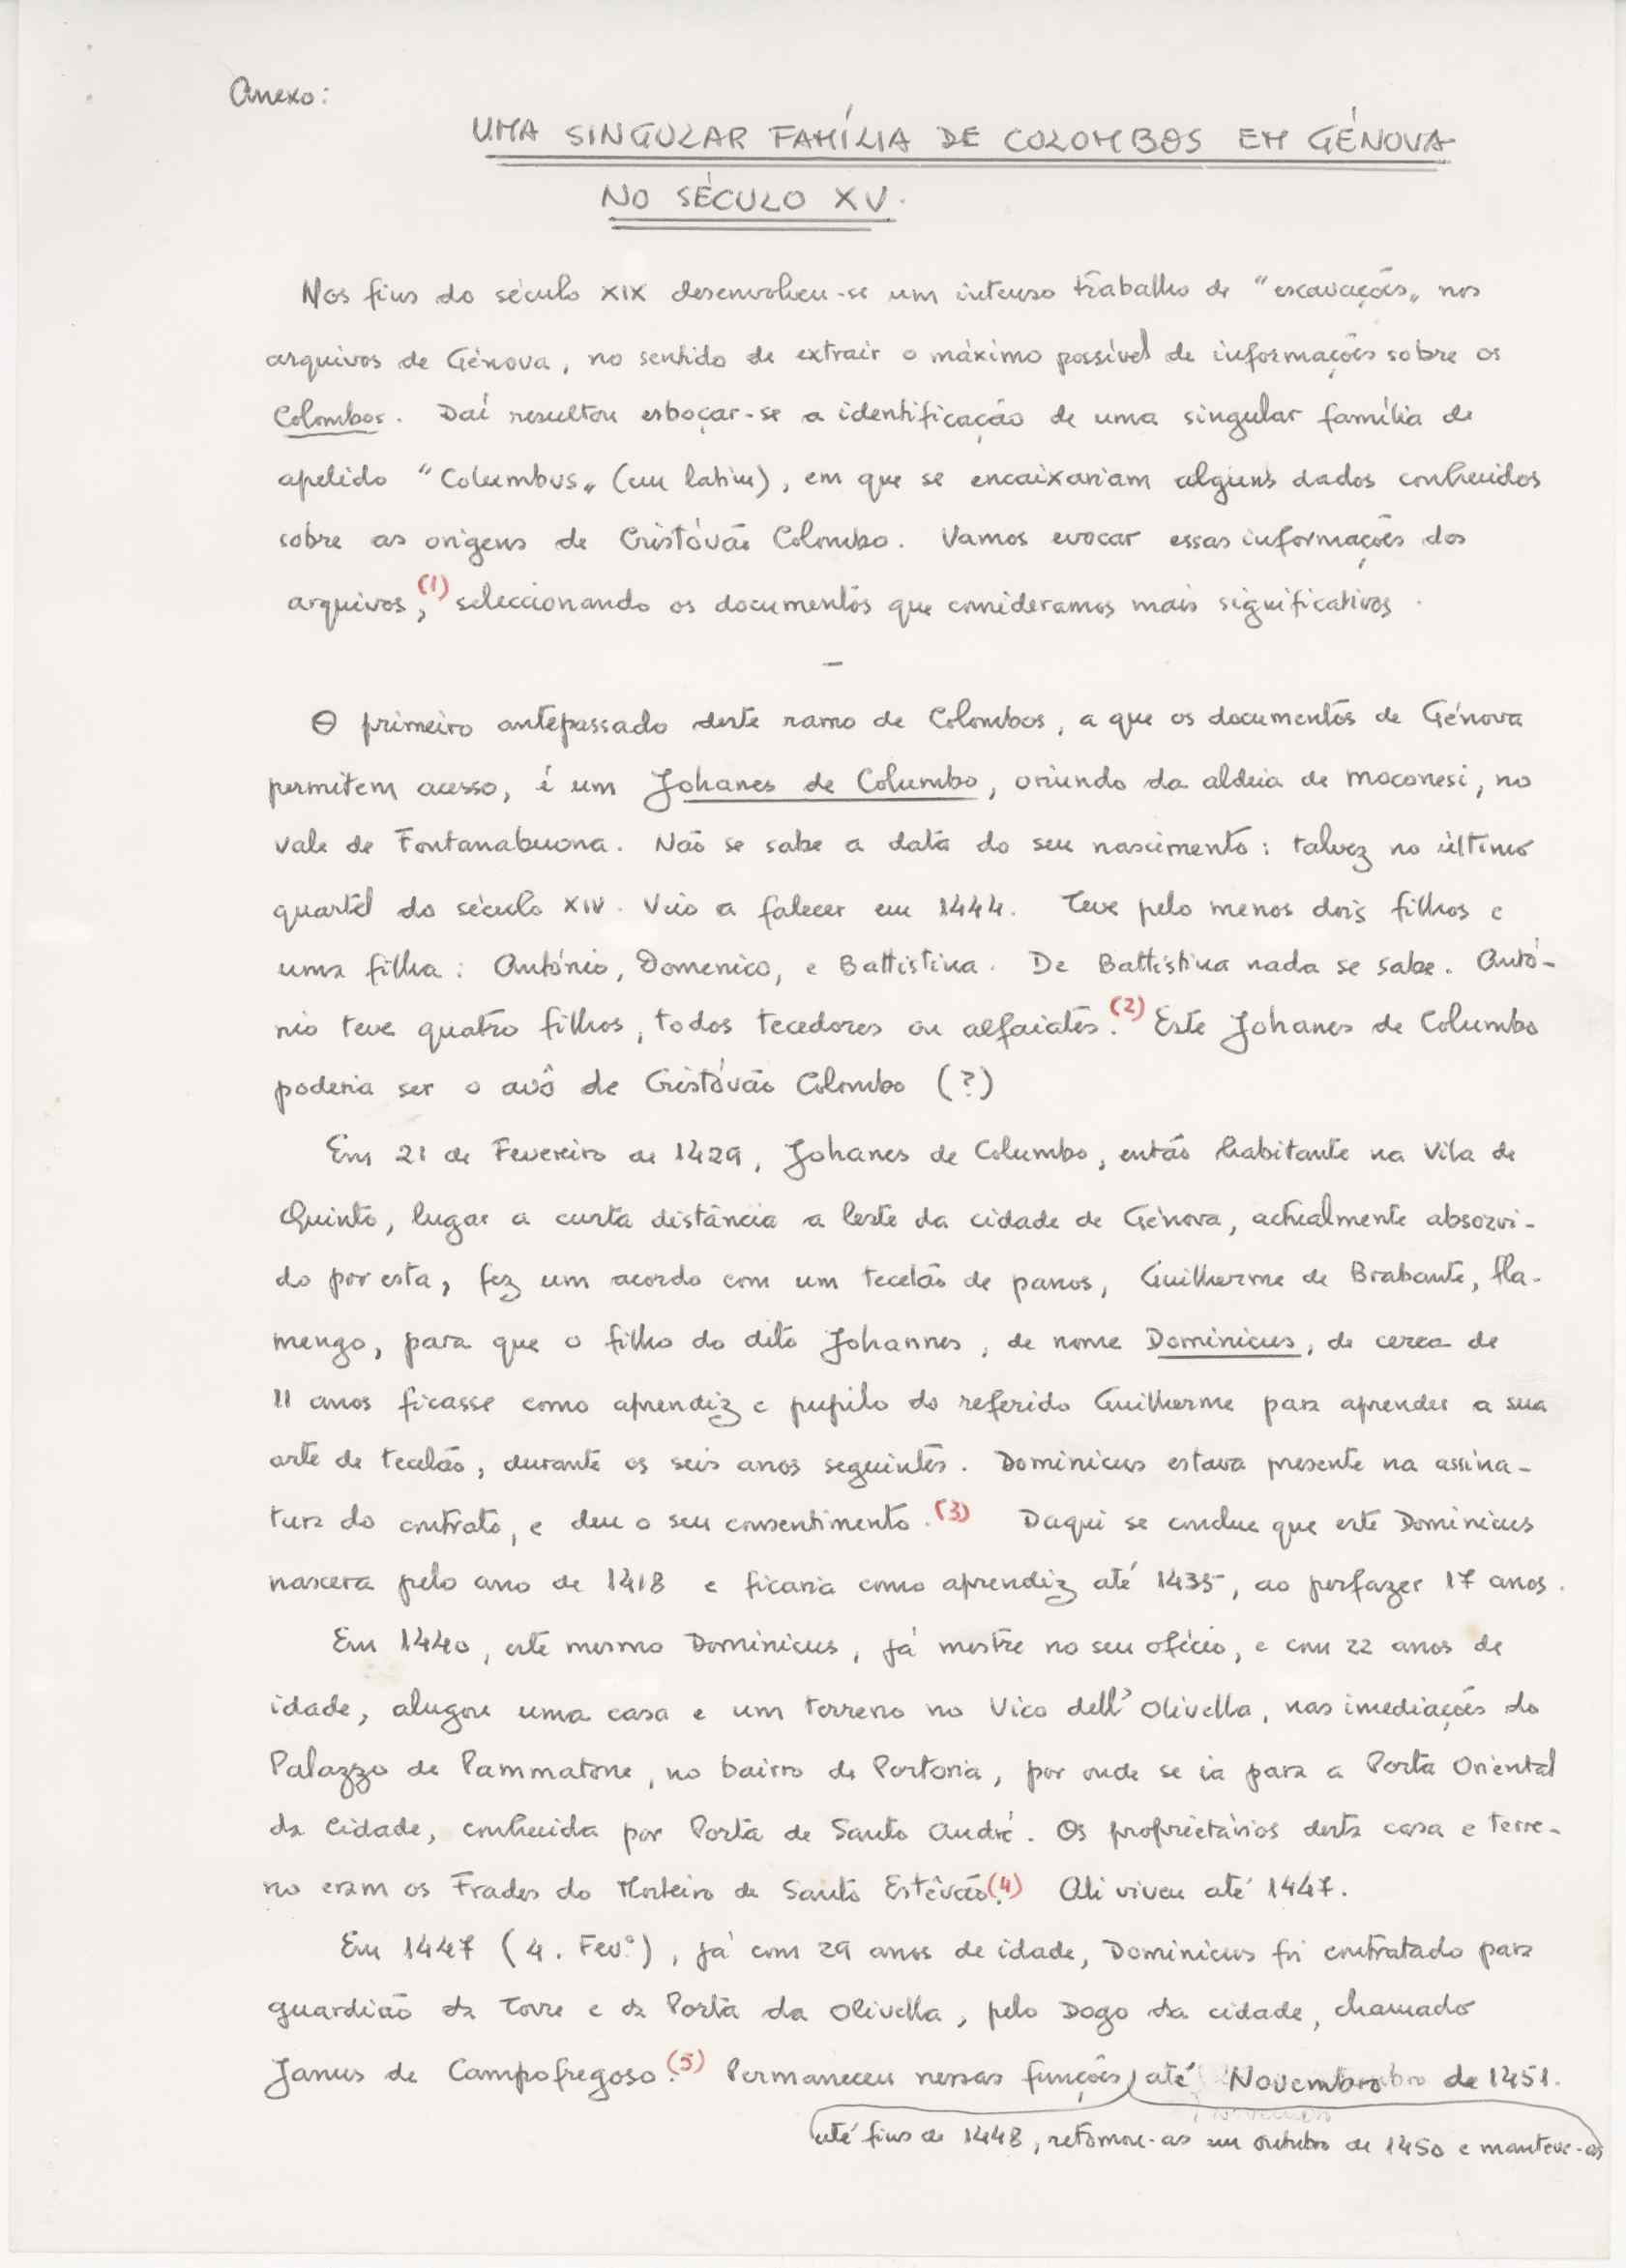 Anexo:
UMA SINGULAR FAMÍLIA DE COLOMBOS EM GÉNOVA
NO SÉCULO XV.
Nos fins do século XIX desenvolveu-se um intenso trabalho de "escavações" nos
arquivos de Génova, no sentido de extrair o máximo possível de informações sobre os
Colombos. Daí resultou esboçar-se a identificação de uma singular família de
apelido "Columbus" (em latim), em que se encaixariam alguns dados conhecidos
sobre as origens de Cristóvão Colombo. Vamos evocar essas informações dos
arquivos,(1) seleccionando os documentos que consideramos mais significativos.
—
O primeiro antepassado deste ramo de Colombos, a que os documentos de Génova
permitem acesso, é um Johanes de Columbo, oriundo da aldeia de Moconesi, no
vale de Fontanabuona. Não se sabe a data do seu nascimento: talvez no último
quartel do século XIV. Veio a falecer em 1444. Teve pelo menos dois filhos e
uma filha: António, Domenico, e Battistina. De Battistina nada se sabe. Antó-
nio teve quatro filhos, todos tecedores ou alfaiates.(2) Este Johanes de Columbo
poderia ser o avô de Cristóvão Colombo (?)
Em 21 de Fevereiro de 1429, Johanes de Columbo, então habitante na Vila de
Quinto, lugar a curta distância a leste da cidade de Génova, actualmente absorvi-
do por esta, fez um acordo com um tecelão de panos, Guilherme de Brabante, fla-
mengo, para que o filho do dito Johannes, de nome Dominicus, de cerca de
11 anos ficasse como aprendiz e pupilo do referido Guilherme para aprender a sua
arte de tecelão, durante os seis anos seguintes. Dominicus estava presente na assina-
tura do contrato, e deu o seu consentimento.(3) Daqui se conclue que este Dominicus
nascera pelo ano de 1418 e ficaria como aprendiz até 1435, ao perfazer 17 anos.
Em 1440, este mesmo Dominicus, já mestre no seu ofício, e com 22 anos de
idade, alugou uma casa e um terreno no Vico dell'Olivella, nas imediações do
Palazzo de Pammatone, no bairro de Portoria, por onde se ia para a Porta Oriental
da Cidade, conhecida por Porta de Santo André. Os proprietários desta casa e terre-
no eram os Frades do Mosteiro de Santo Estêvão.(4) Ali viveu até 1447.
Em 1447 (4. Fevº), já com 29 anos de idade, Dominicus foi contratado para
guardião da Torre e da Porta da Olivella, pelo Dogo da cidade, chamado
Janus de Campofregoso.(5) Permaneceu nessas funções, até Novembro de 1451.
até fins de 1448, retomou-as em Outubro de 1450 e manteve-as